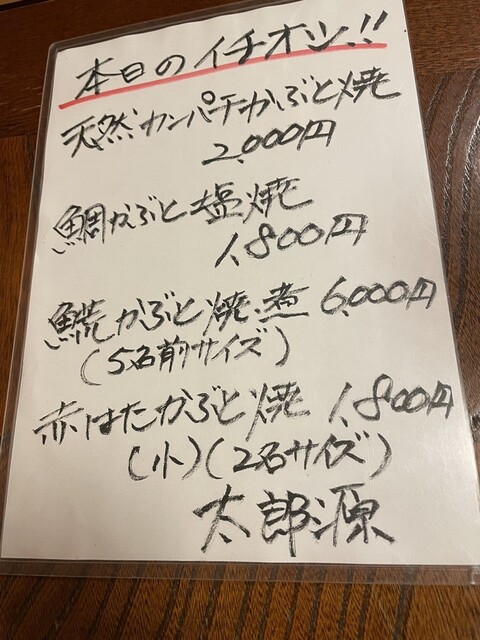 本日のイチオシ!!
天然カンパチかぶと焼
2,000円
鯛かぶと塩焼
1,800円
鱫かぶと焼・煮 6,000円
(5名前サイズ)
赤はたかぶと焼 1,800円
(小)(2名サイズ)
太郎源